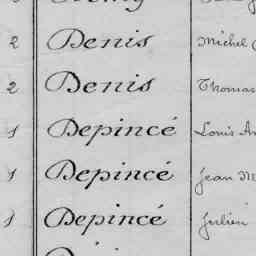 2 Denis Michel
2 Denis Thomas
1 Depincé Louis
1 Depincé Jean M
1 Depincé Julien